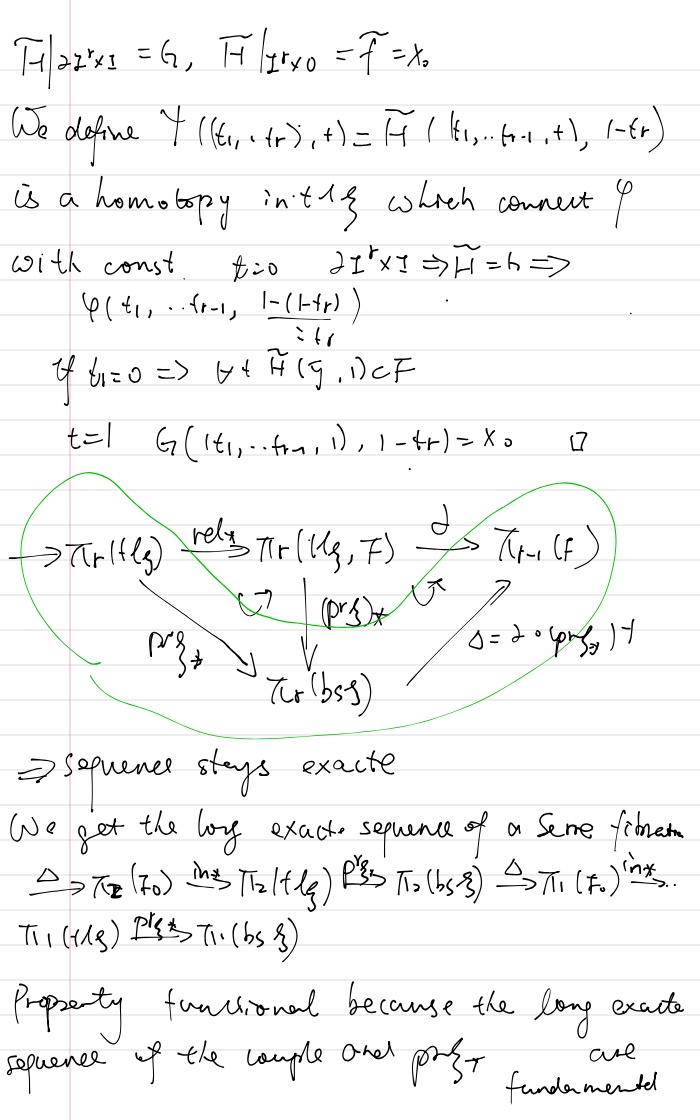 H̃|∂I^r×I = G, H̃|I^r×0 = f̃ = x₀
We define Ψ((t₁,..tr),t) = H̃((t₁,..tr-1,t), 1-tr)
is a homotopy in tlξ which connect φ
with const. t=0 ∂I^r×I ⇒ H̃ = h ⇒
φ(t₁, ..tr-1, 1-(1-tr))
= tr
If t₁=0 => ∀t H̃(ȳ,1)⊂F
t=1 G((t₁,..tr-1,1), 1-tr) = x₀ □
→ πr(tlξ) rel* → πr(tlξ, F) ∂ → πr-1(F)
prξ* (prξ)* Δ = ∂∘(prξ*)⁻¹
πr(bsξ)
⇒ sequence stays exacte
We get the long exacte sequence of a Serre fibration
Δ→ π₂(F₀) in*→ π₂(tlξ) prξ*→ π₂(bsξ) Δ→ π₁(F₀) in*→..
π₁(tlξ) prξ*→ π₁(bsξ)
Property functional because the long exacte
sequence of the couple and prξ* are
fundamental